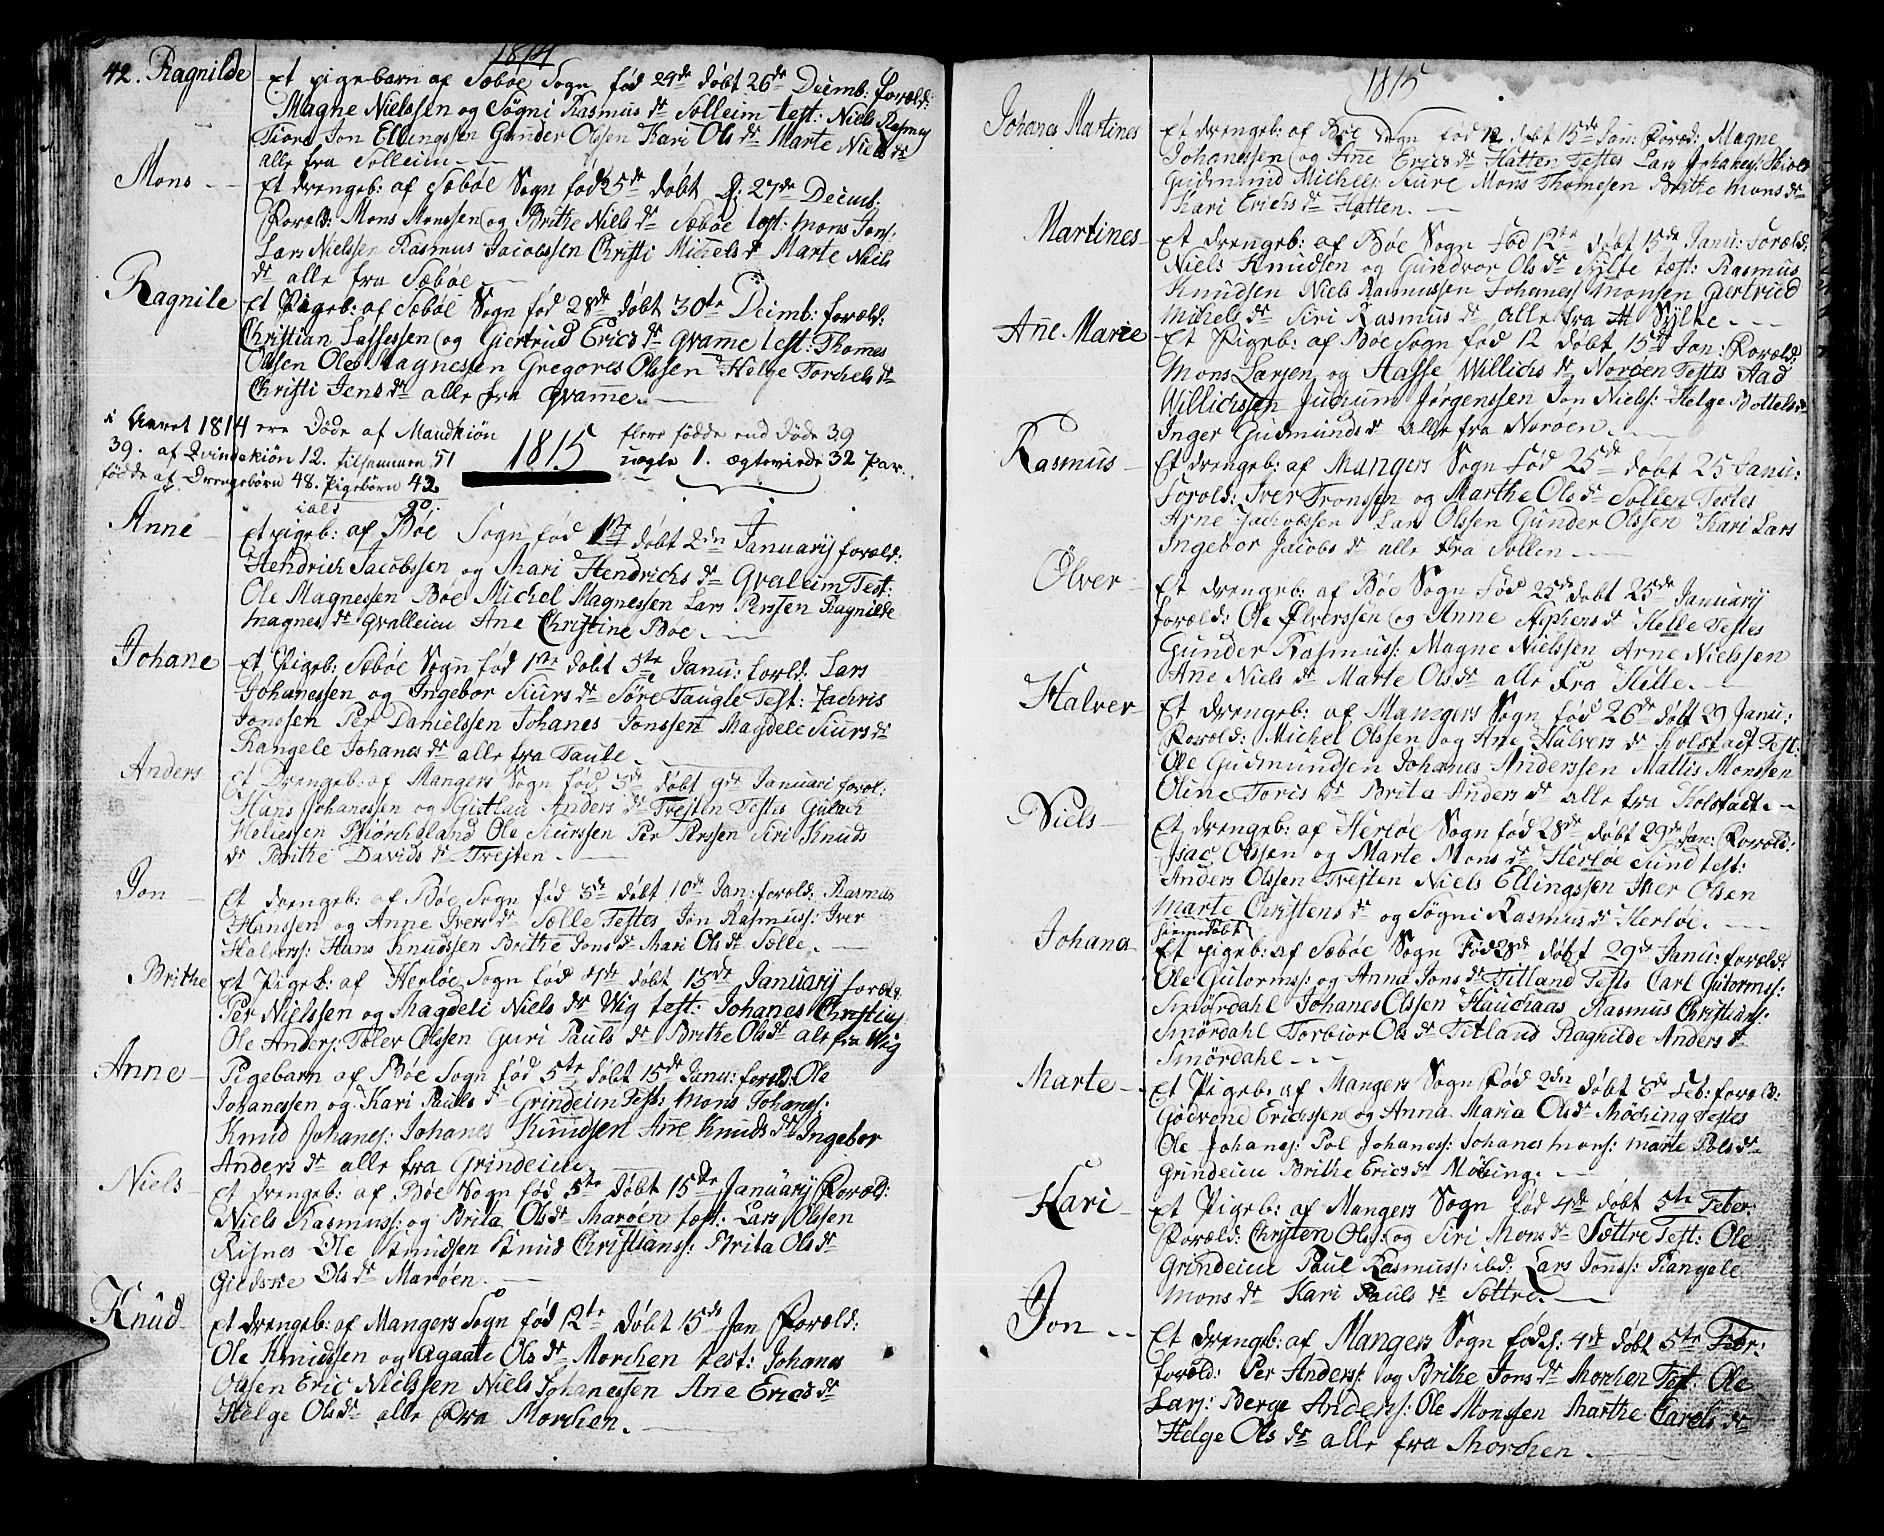 1814
42. Ragnilde Et pigebarn af Sæbøe Sogn fød 24de døbt 26de Decimb: foræld:
Magne Nielssen og Søgni Rasmus dr Solleim test: Niels Rasmus
Tiore Jon Ellingssen Gunder Olssen Kari Ols dr Marte Niels dr
alle fra Solleim
Mons Et drengeb: af Sæbøe Sogn fød 25de døbt D: 27de Decimb:
Foræld: Mons Monssen og Brithe Niels dr Sæbøe test: Mons Jons:
Lars Nielssen Rasmus Jacobssen Christi Michels dr Marte Niels
dr alle fra Sæbøe
Ragnile Et Pigeb: af Sæbøe Sogn fød 28de døbt 30te Decimb: foræld:
Christian Lassessen og Giertrud Erics dr Qvamme test: Thommes
Olssen Ole Magnessen Gregores Olssen Helge Torchels dr
Christi Jens dr alle fra Qvamme.
i Aaret 1814 ere Døde af Mandkiøn
39. af Qvindekiøn 12. tilsammen 51
fødde af Drengebørn 48. Pigebørn 42
ials 90.
1815
flere fødde end døde 39
uægte 1. ægteviede 32 Par.
Anne Et pigeb: af Bøe Sogn fød 1te døbt 2den January foræld:
Hendrich Jacobssen og Mari Hendrichs dr Qvaleim Test:
Ole Magnessen Bøe Michel Magnessen Lars Perssen Ragnilde
Magnes dr Qvalleim Ane Christine Bøe.
Johane Et Pigeb: Sæbøe Sogn fød 1te døbt 5te Janu: foræld: Lars
Johanessen og Ingebor Siurs dr Søre Taugle Test: Zachris
Jonssen Per Danielssen Johanes Jonssen Magdele Siurs dr
Rangele Johanes dr alle fra Taule
Anders Et Drengeb: af Mangers Sogn fød 3de døbt 9de Januari foræl:
Hans Johanssen og Gutlau Anders dr Trejten Testes Gulach
Heliessen Biørchelland Ole Siurssen Per Perssen Siri Knuds
dr Brithe Davids dr Trejten.
Jon Et drengeb: af Bøe Sogn fød 3de døbt 10de Jan: foræld: Rasmus
Hanssen og Anne Ivers dr Sælle Testes Jon Rasmuss: Iver
Halverss: Hans Knudssen Brithe Jons dr Mari Ols dr Sælle.
Brithe Et Pigeb: af Herløe Sogn fød 4de døbt 13de January foræld:
Per Nielssen og Magdeli Niels dr Wig test: Johanes Christians
Ole Anders: Tolev Olssen Guri Pauls dr Brithe Ols dr alle fra Wig
Anne Pigebarn af Bøe Sogn fød 5te døbt 15de Janu: foræld: Ole
Johanessen og Kari Pauls dr Grindeim Test: Mons Johaness:
Knud Johaness: Johanes Knudssen Ane Knuds dr Ingebor
Anders dr alle fra Grindeim
Niels Et drengeb: af Bøe Sogn fød 5te døbt 15de January Foræld:
Niels Rasmuss: og Brita Ols dr Marøen test: Lars Olssen
Risnes Ole Knudsen Knud Christians: Brita Ols dr
Gidske Ols dr Marøen.
Knud Et drengeb: af Mangers Sogn fød 12te døbt 15de Jan Foræld:
Ole Knudssen og Agaate Ols dr Morchen test: Johanes
Olssen Eric Nielssen Niels Johanessen Ane Erics dr
Helge Ols dr alle fra Morchen.
1815
Johanes Martines Et drengeb: af Bøe Sogn fød 12. døbt 15de Jan: Foræld: Magne
Johanssen og Ane Erics dr Hatten Testes Lars Johanes:
Gudmund Michels: Aure Mons Thomesen Brithe Mons dr
Kari Erichs dr Hatten.
Martines Et drengeb: af Bøe Sogn fød 12te døbt 15de Janu: Foræld:
Niels Knudsen og Gundvor Ols dr Sylte test: Rasmus
Knudsen Niels Rasmussen Johaness Monsen Giertrud
Michels dr Siri Rasmus dr alle fra Sylte.
Ane Marie Et Pigeb: af Bøe Sogn fød 12 døbt 15de Jan: Foræld:
Mons Larsen og Aasse Willichs dr Norøen Testes Aad
Willichssen Judium Jørgenssen Jon Niels: Helge Bottels dr
Inger Gudmunds dr alle fra Norøen.
Rasmus Et drengeb: af Mangers Sogn fød 25de døbt 25 Janu:
Foræld: Iver Tronssen og Marthe Ols dr Sollen Testes
Arne Jachobssen Lars Olssen Gunder Olssen Kari Lars
Ingebor Jacobs dr alle fra Sollen
Ølver Et drengeb: af Bøe Sogn fød 25de døbt 25de January
foræld: Ole Ølverssen og Anne Stephens dr Helle Testes
Gunder Rasmuss: Magne Nielssen Arne Nielssen
Ane Niels dr Marte Ols dr alle fra Helle.
Halver Et drengeb: af Mangers Sogn fød 26de døbt 29 Janu:
Foræld: Michel Olssen og Ane Halvers dr Kolstadt Test:
Ole Gudmundsen Johanes Anderssen Mattis Monssen
Oline Toris dr Brita Anders dr alle fra Kolstadt.
Niels Et drengeb: af Herløe Sogn fød 28de døbt 29de Jan: Foræld:
Isac Olssen og Marte Mons dr Herløe Sund test:
Anders Olssen Trejten Niels Ellingssen Iver Olsen
Marte Christens dr og Søgni Rasmus dr Herløe.
Johana hiemedøbt
Et pigeb: af Sæbøe Sogn Fød 28de døbt 29de Janu: foræld:
Ole Gutormss: og Anna Jons dr Titland Tests Carl Gutormss:
Smørdahl Johanes Olssen Hauchaas Rasmus Christians:
Smørdahl Torbiør Ols dr Titland Ragnilde Anders dr
Smørdahl
Marte Et Pigeb: af Mangers Sogn Fød 2den døbt 3de Feb: foræld:
Gødvend Erichssen og Anna Maria Ols dr Møching Testes
Ole Johaness: Pol Johaness: Johanes Mons: Marte Pols dr
Grindeim Brithe Erics dr Møking.
Kari Et Pigeb: af Mangers Sogn fød 4de døbt 5te Feber:
Foræld: Christen Olss: og Siri Mons dr Sættre Test: Ole
Grindeim Paul Rasmuss: ibd: Lars Jonss: Rangele
Mons dr Kari Pauls dr Sættre.
Jon Et drengeb: af Mangers Sogn fød: 4de døbt 5te Febr:
foræld: Per Anders: og Brithe Jons dr Morchen Test: Ole
Lars: Berge Anderss: Ole Monssen Marthe Carels dr
Helge Ols dr alle fra Morchen